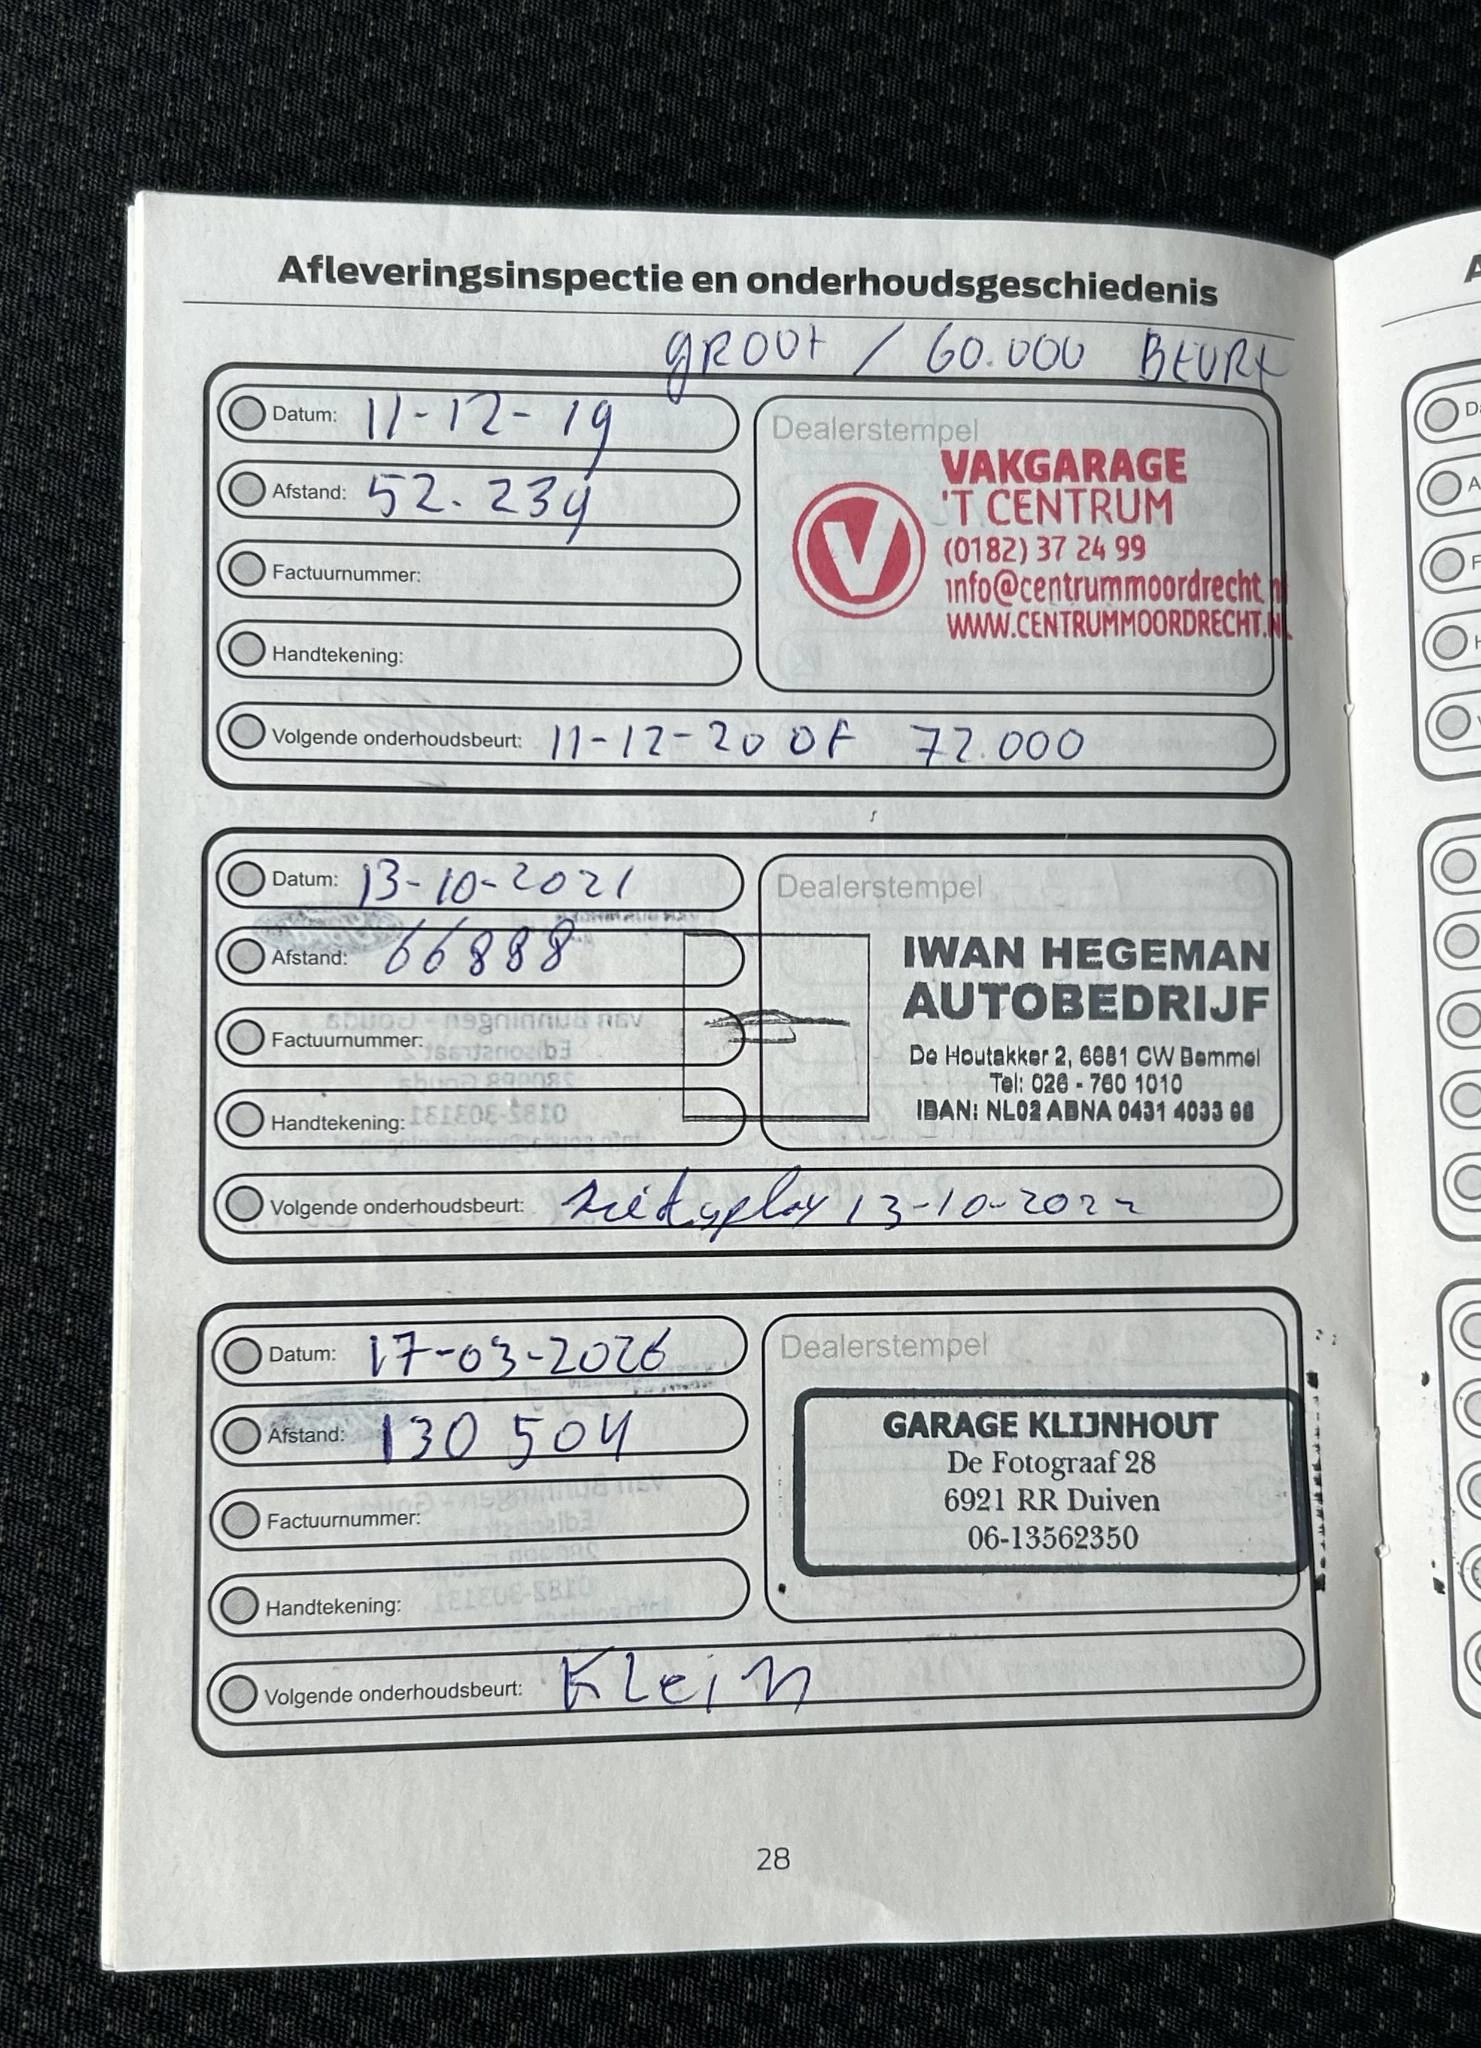 Afleveringsinspectie en onderhoudsgeschiedenis
GROOT / 60.000 BEURT
Datum: 11-12-19
Afstand: 52.234
Factuurnummer:
Handtekening:
Volgende onderhoudsbeurt: 11-12-20 OF 72.000
Dealerstempel
VAKGARAGE
'T CENTRUM
(0182) 37 24 99
info@centrummoordrecht.nl
WWW.CENTRUMMOORDRECHT.NL
Datum: 13-10-2021
Afstand: 66888
Factuurnummer:
Handtekening:
Volgende onderhoudsbeurt: 13-10-2022
Dealerstempel
IWAN HEGEMAN
AUTOBEDRIJF
De Houtakker 2, 6681 CW Bemmel
Tel: 026 - 760 1010
IBAN: NL02 ABNA 0431 4033 66
Datum: 17-03-2026
Afstand: 130 504
Factuurnummer:
Handtekening:
Volgende onderhoudsbeurt: Klein
Dealerstempel
GARAGE KLIJNHOUT
De Fotograaf 28
6921 RR Duiven
06-13562350
28